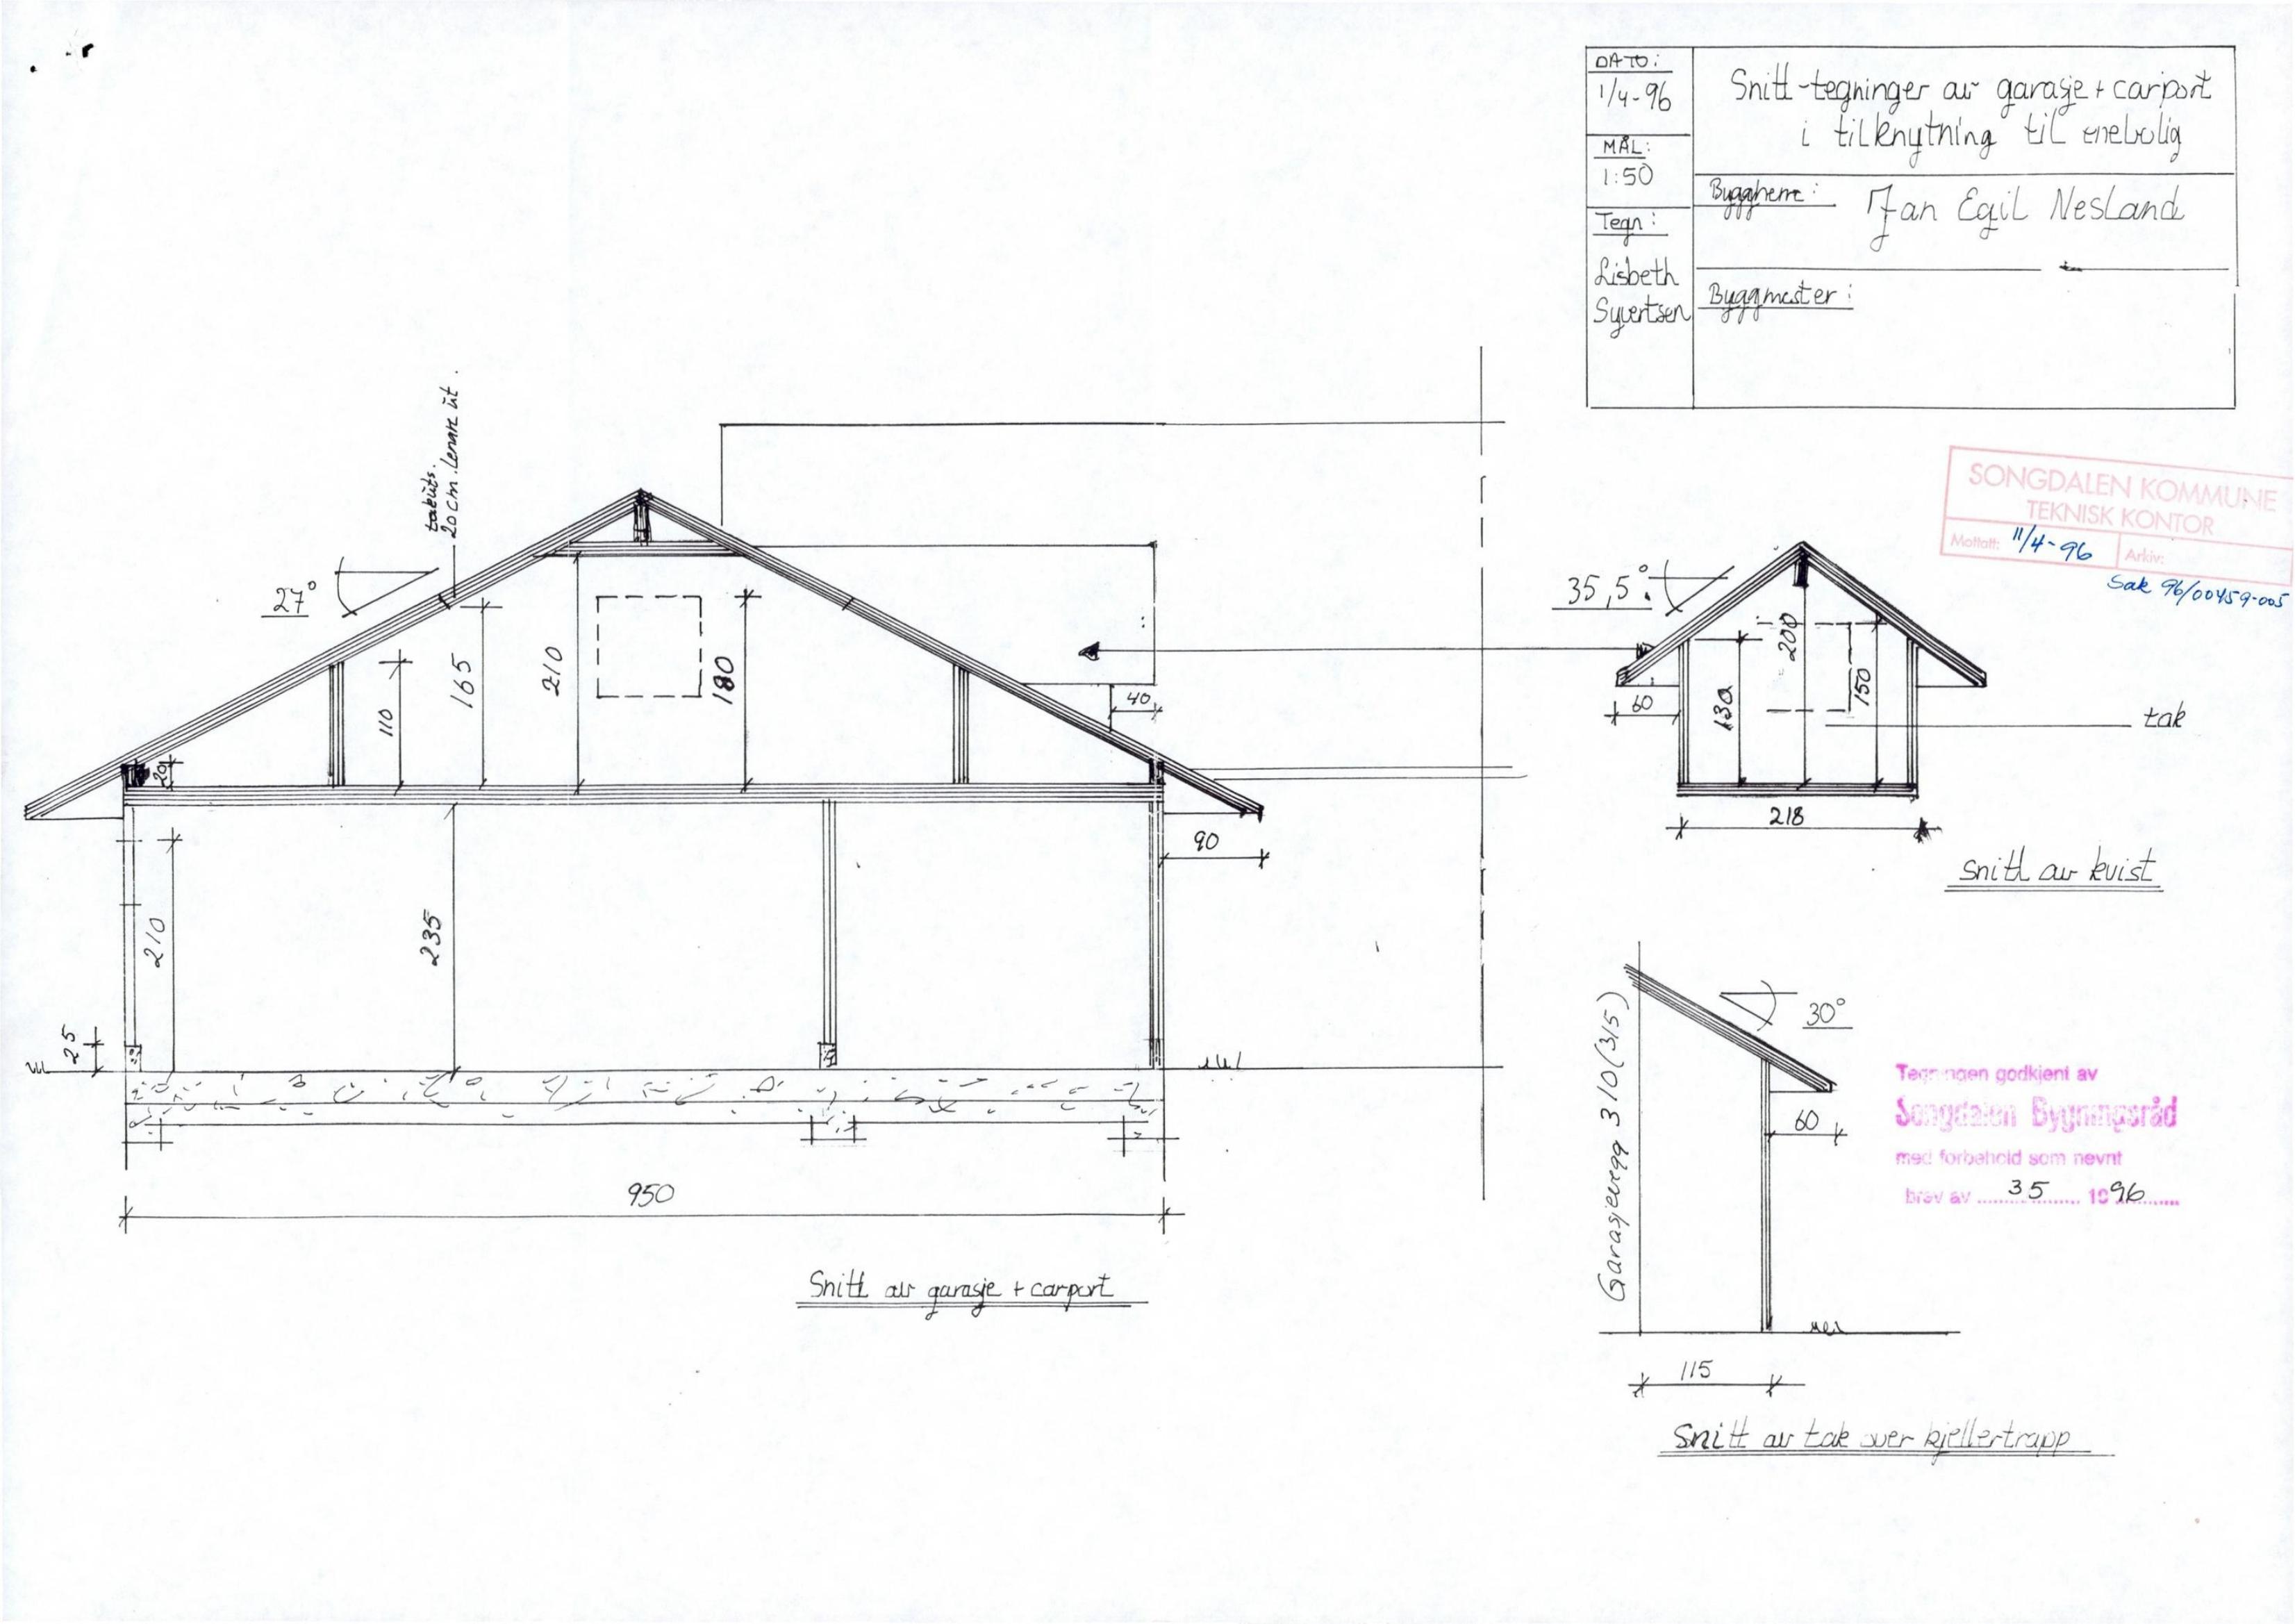 DATO:
1/4-96
MÅL:
1:50
Tegn:
Lisbeth
Syvertsen
Snitt-tegninger av garasje + carport
i tilknytning til enebolig
Byggherre:
Jan Egil Nesland
Byggmester:
SONGDALEN KOMMUNE
TEKNISK KONTOR
Mottatt: 11/4-96
Arkiv:
Sak 96/00459-005
takuts.
20 cm. lenare ut.
27°
110
165
210
180
20
40
90
210
235
25
950
Snitt av garasje + carport
35,5°
60
130
200
150
tak
218
Snitt av kvist
Garasjevegg 310 (315)
30°
60
115
Snitt av tak over kjellertrapp
Tegningen godkjent av
Songdalen Bygningsråd
med forbehold som nevnt
brev av 35 1996